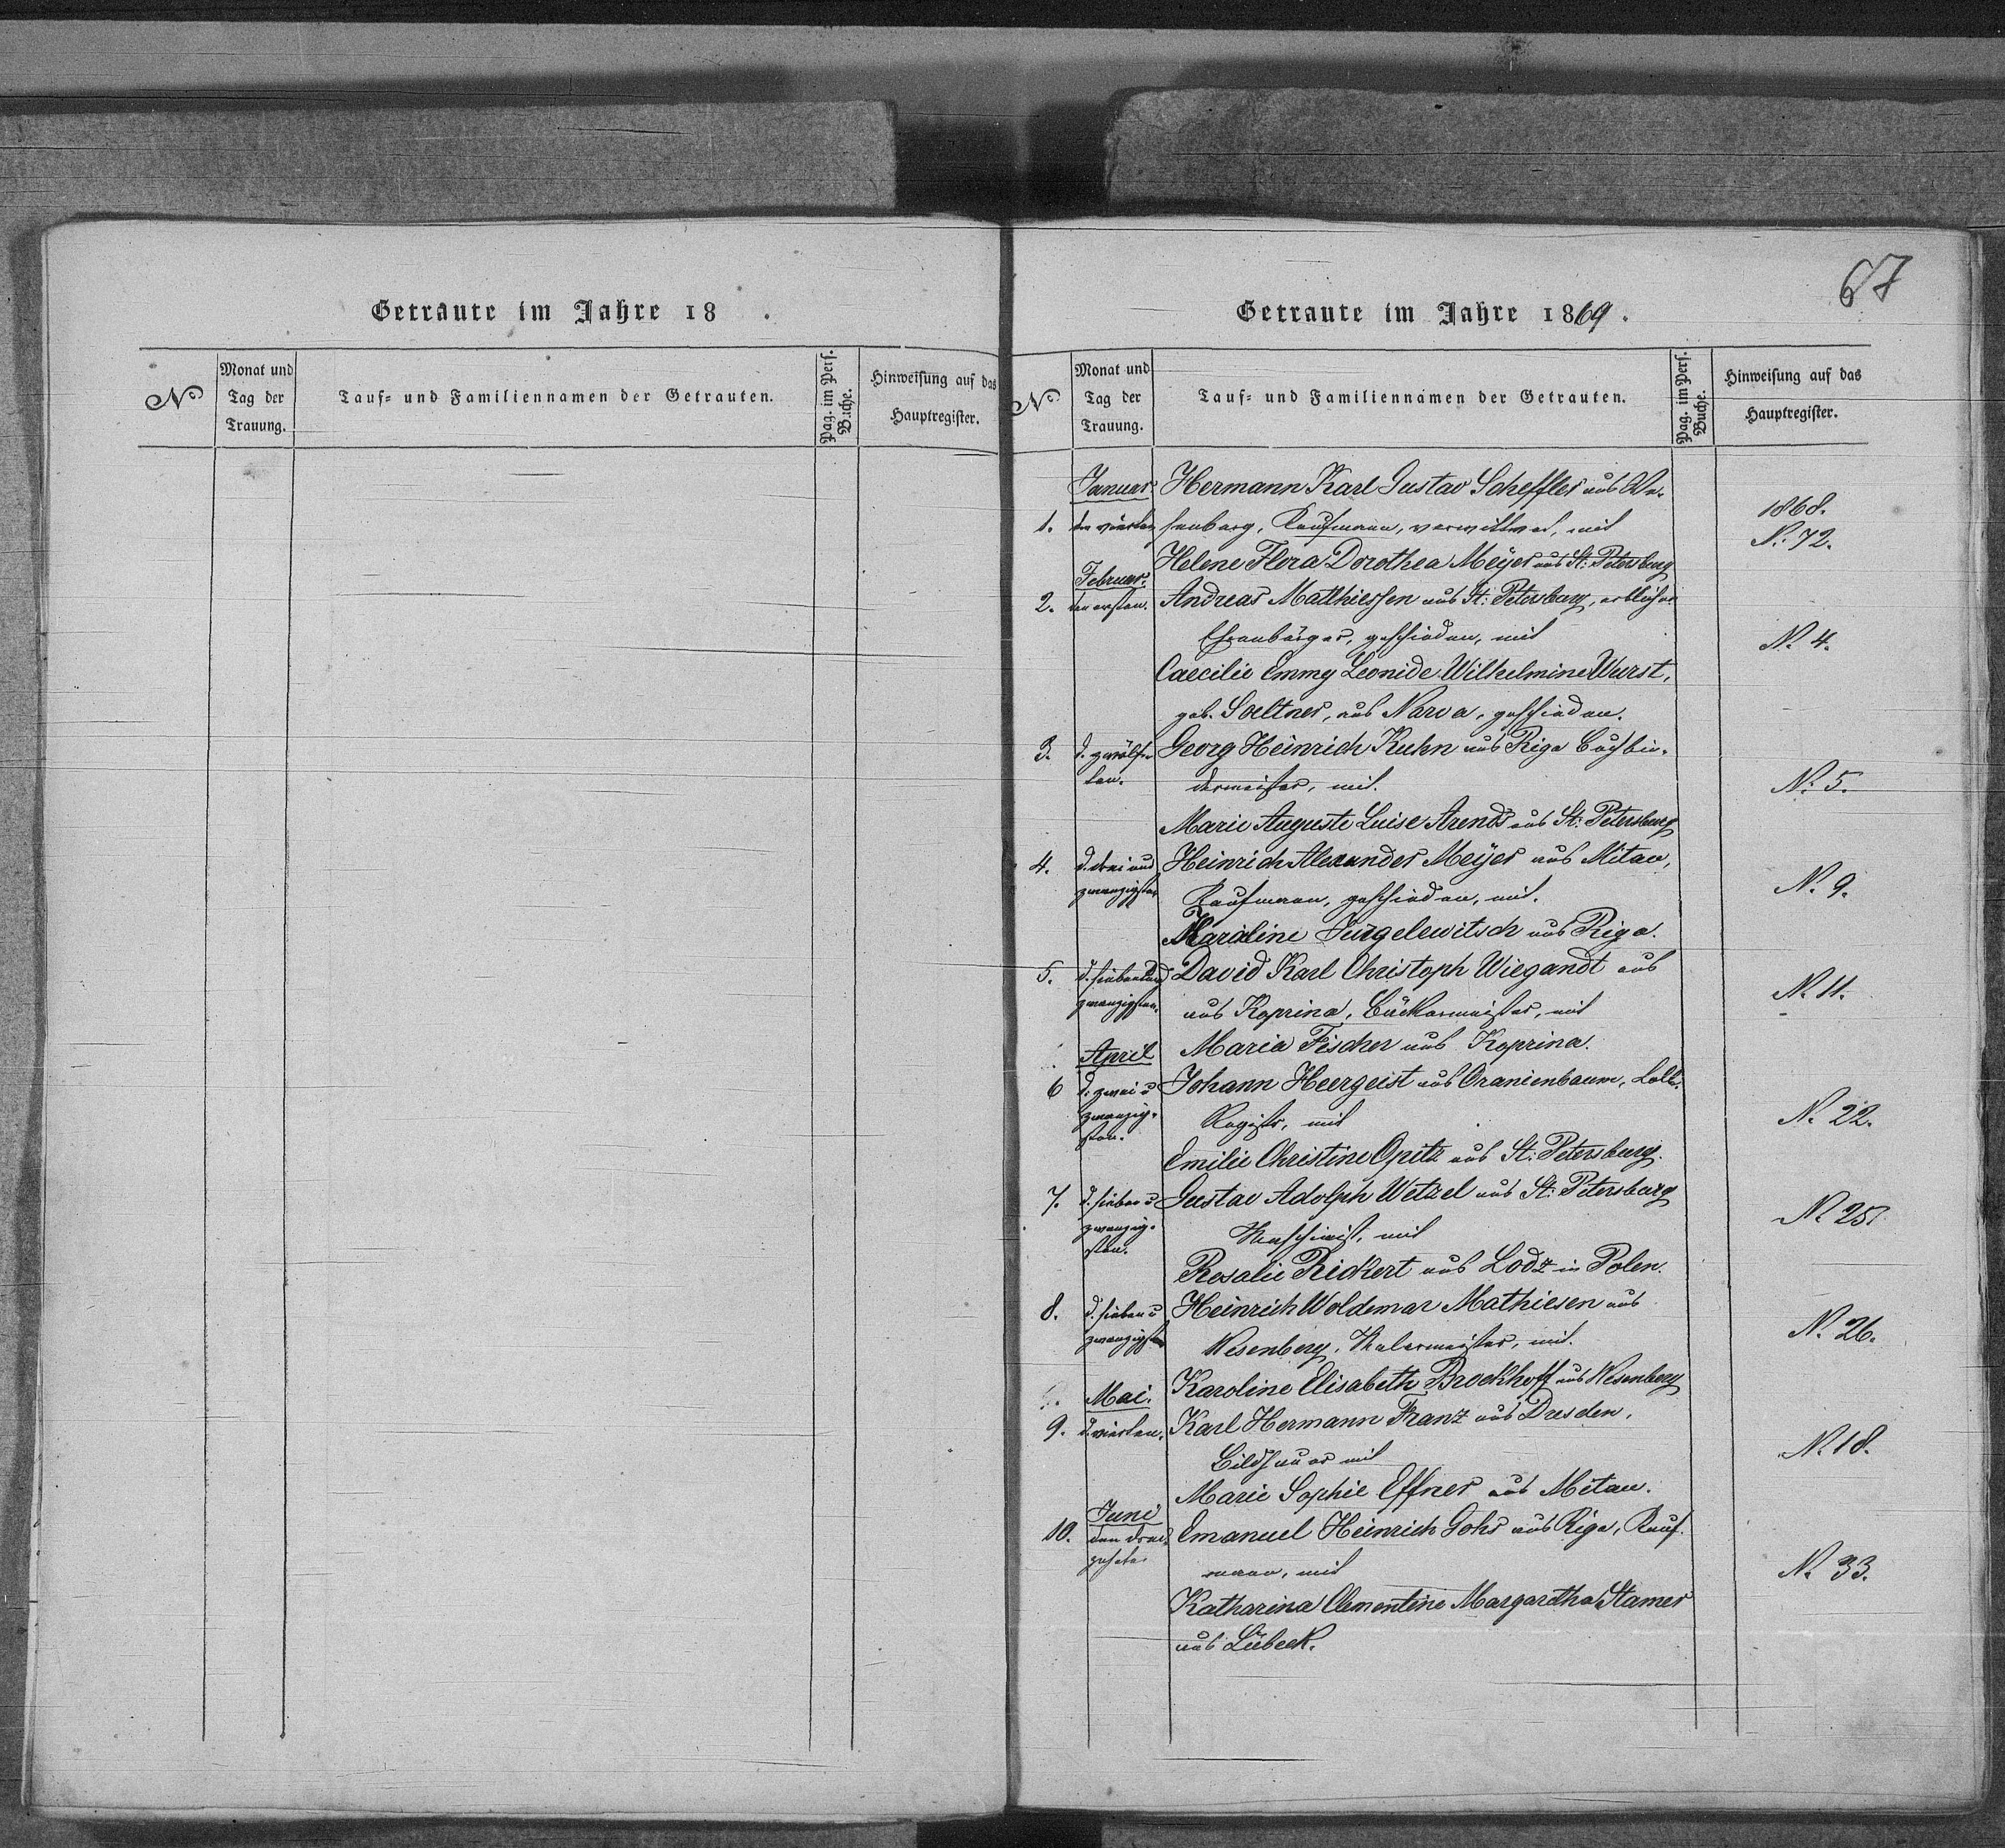 Getraute im Jahre 18 .
No
Monat und
Tag der
Trauung.
Tauf- und Familiennamen der Getrauten.
Pag. im Pers.
Buche.
Hinweisung auf das
Hauptregister.
67
Getraute im Jahre 1869.
No
Monat und
Tag der
Trauung.
Tauf- und Familiennamen der Getrauten.
Pag. im Pers.
Buche.
Hinweisung auf das
Hauptregister.
Januar. Hermann Karl Gustav Scheffler aus We-
1. den vierten senberg, Kaufmann, verwittwet, mit 1868. N. 72.
Helene Flora Dorothea Meyer aus St. Petersburg
Februar.
2. den ersten. Andreas Matthiessen aus St. Petersburg, erblicher
Ehrenbürger, geschieden, mit N. 4.
Caecilie Emmy Leonide Wilhelmine Wurst,
geb. Soeltner, aus Narva, geschieden.
3. d. zwölf- Georg Heinrich Kuhn aus Riga Buchbin-
ten. dermeister, mit. N. 5.
Marie Auguste Luise Arends aus St. Petersburg
4. d. drei und Heinrich Alexander Meyer aus Mitau,
zwanzigsten Kaufmann, geschieden, mit. N. 9.
Karoline Jurgelewitsch aus Riga.
5. d. siebenund David Karl Christoph Wiegandt aus
zwanzigsten. aus Koprina, Bäckermeister, mit N. 11.
April Maria Fischer aus Koprina.
6 d. zwei u Johann Heergeist aus Oranienbaum, Koll.
zwanzig- Regist., mit N. 22.
sten.
Emilie Christine Opitz aus St. Petersburg.
7. d. sieben u Gustav Adolph Wetzel aus St. Petersburg
zwanzig- Maschinist, mit N. 25.
sten.
Rosalie Rickert aus Lodz in Polen.
8. d. sieben u Heinrich Woldemar Mathiesen aus
zwanzigsten Wesenberg, Malermeister, mit. N. 26.
Karoline Elisabeth Brockhoff aus Wesenberg
Mai.
9. d. vierten. Karl Hermann Franz aus Dresden,
Bildhauer mit N. 18.
Marie Sophie Effner aus Mitau.
Juni
10. den drei- Emanuel Heinrich Gohs aus Riga, Kauf-
zehnten mann, mit N. 33.
Katharina Clementine Margaretha Stamer
aus Lübeck.